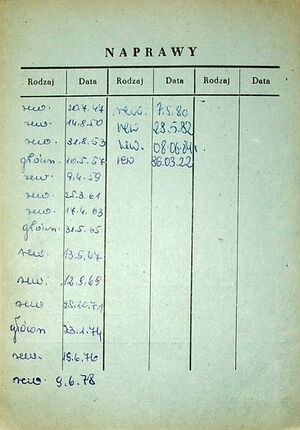 NAPRAWY
Rodzaj Data Rodzaj Data Rodzaj Data
rew. 20.7.47 rew. 7.5.80
rew. 14.8.50 rew 28.5.82
rew. 31.8.53 rew. 08.06.84r.
główn. 10.5.57 rew 86.03.22
rew. 9.4.59
rew. 25.3.61
rew. 17.4.63
główn. 31.5.65
rew. 13.5.67
rew. 12.5.69
rew 28.10.71
główn 23.1.74
rew. 19.6.76
rew. 9.6.78